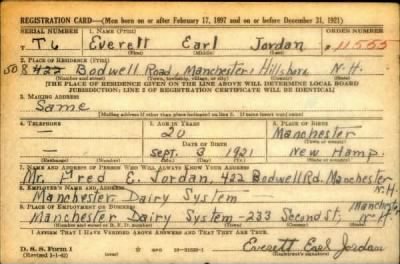 REGISTRATION CARD—(Men born on or after February 17, 1897 and on or before December 31, 1921)
SERIAL NUMBER 1. NAME (Print) ORDER NUMBER
T 6 Everett Earl Jordan 11555
(First) (Middle) (Last)
2. PLACE OF RESIDENCE (Print)
508 422 Bodwell Road, Manchester, Hillsboro N.H.
(Number and street) (Town, township, village, or city) (County) (State)
[THE PLACE OF RESIDENCE GIVEN ON THE LINE ABOVE WILL DETERMINE LOCAL BOARD
JURISDICTION; LINE 2 OF REGISTRATION CERTIFICATE WILL BE IDENTICAL]
3. MAILING ADDRESS
Same
[Mailing address if other than place indicated on line 2. If same insert word same]
4. TELEPHONE 5. AGE IN YEARS 6. PLACE OF BIRTH
— 20 Manchester
DATE OF BIRTH (Town or county)
— Sept. 3 1921 New Hamp.
(Exchange) (Number) (Mo.) (Day) (Yr.) (State or country)
7. NAME AND ADDRESS OF PERSON WHO WILL ALWAYS KNOW YOUR ADDRESS
Mr. Fred E. Jordan, 422 Bodwell Rd. Manchester
N.H.
8. EMPLOYER'S NAME AND ADDRESS
Manchester Dairy System
9. PLACE OF EMPLOYMENT OR BUSINESS
Manchester Dairy System - 233 Second St, Manchester N.H.
(Number and street or R. F. D. number) (Town) (County) (State)
I AFFIRM THAT I HAVE VERIFIED ABOVE ANSWERS AND THAT THEY ARE TRUE.
D. S. S. Form 1
(Revised 1-1-42) GPO Everett Earl Jordan